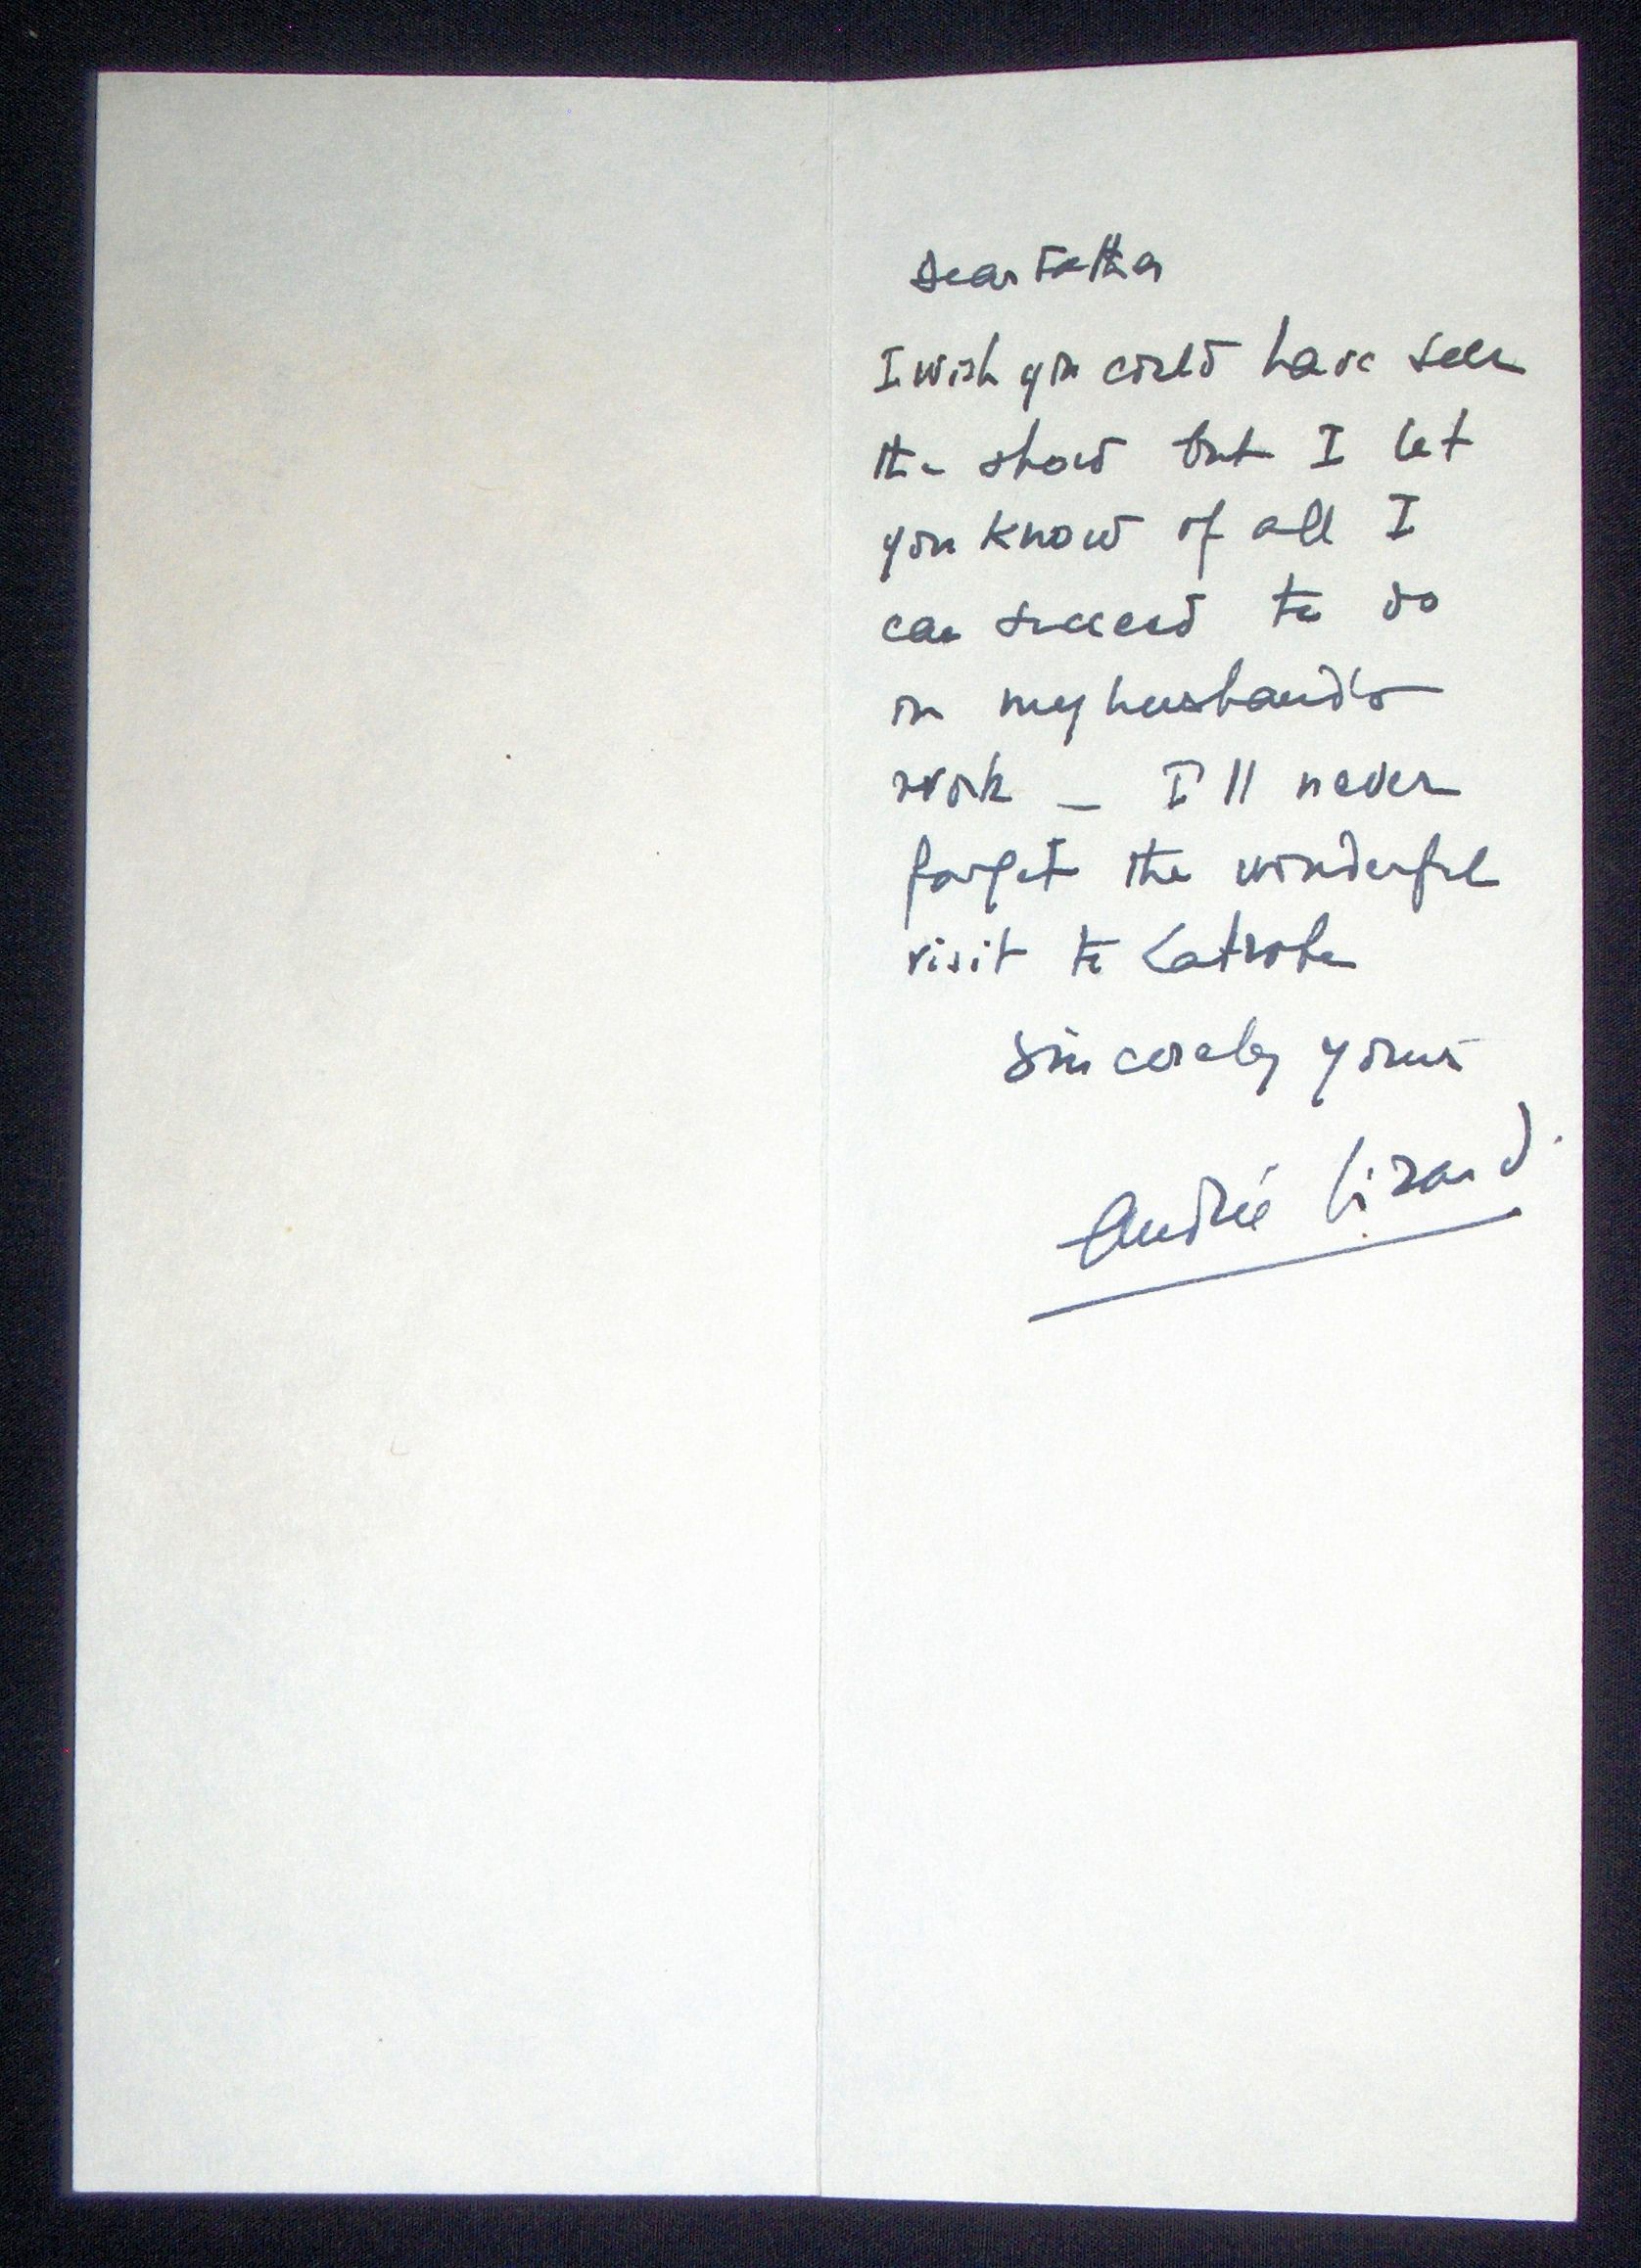 Dear Father
I wish you could have seen
the show but I let
you know of all I
can succeed to do
in my husband's
work _ I'll never
forget the wonderful
visit to Latrobe
Sincerely yours
Andrée